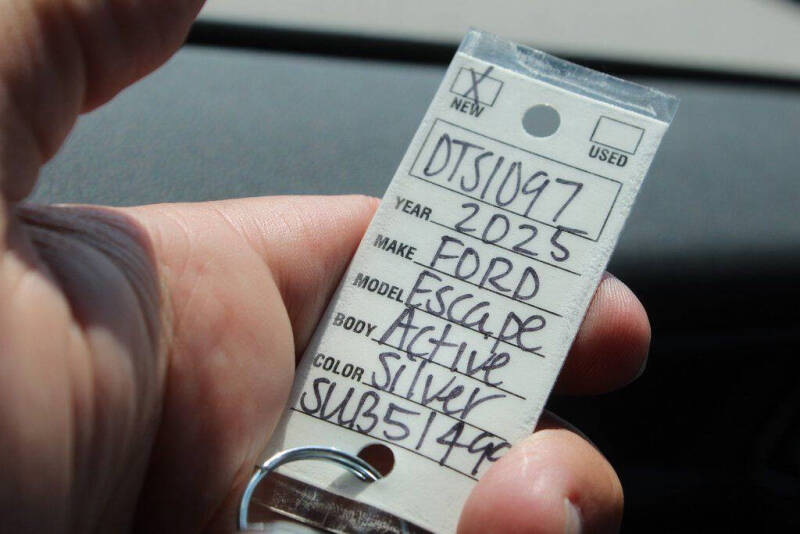 X
NEW
USED
DTS1097
YEAR 2025
MAKE FORD
MODEL Escape
BODY Active
COLOR Silver